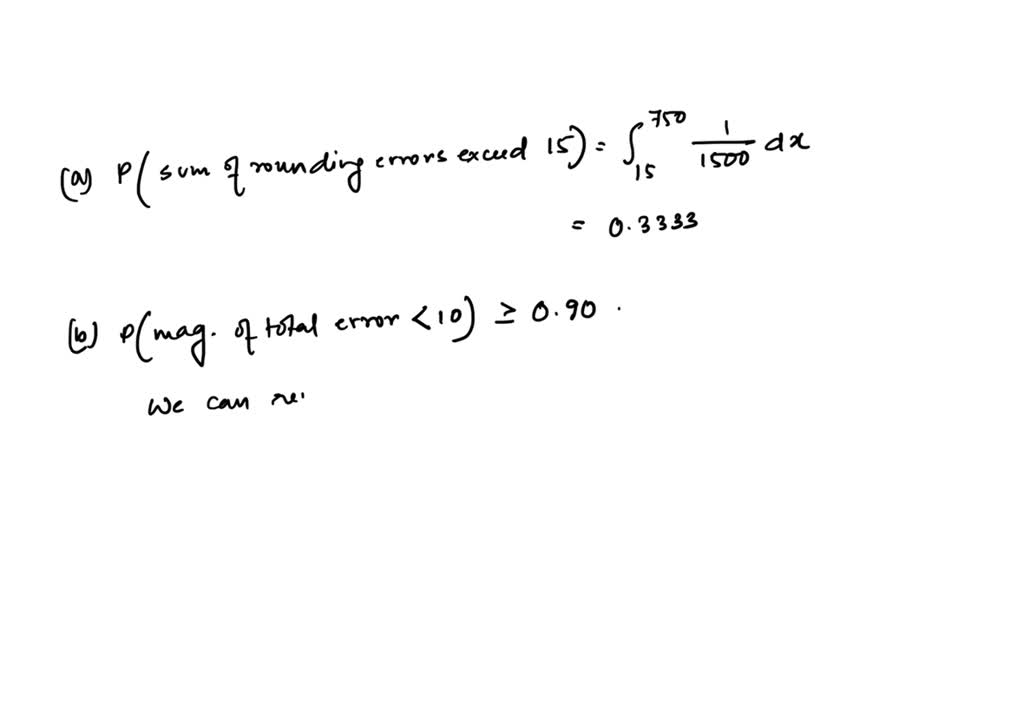 (a) P(sum of rounding errors exceed 15) = ∫₁₅⁷⁵⁰ 1/1500 dx
= 0.3333
(b) P(mag. of total error < 10) ≥ 0.90 .
We can